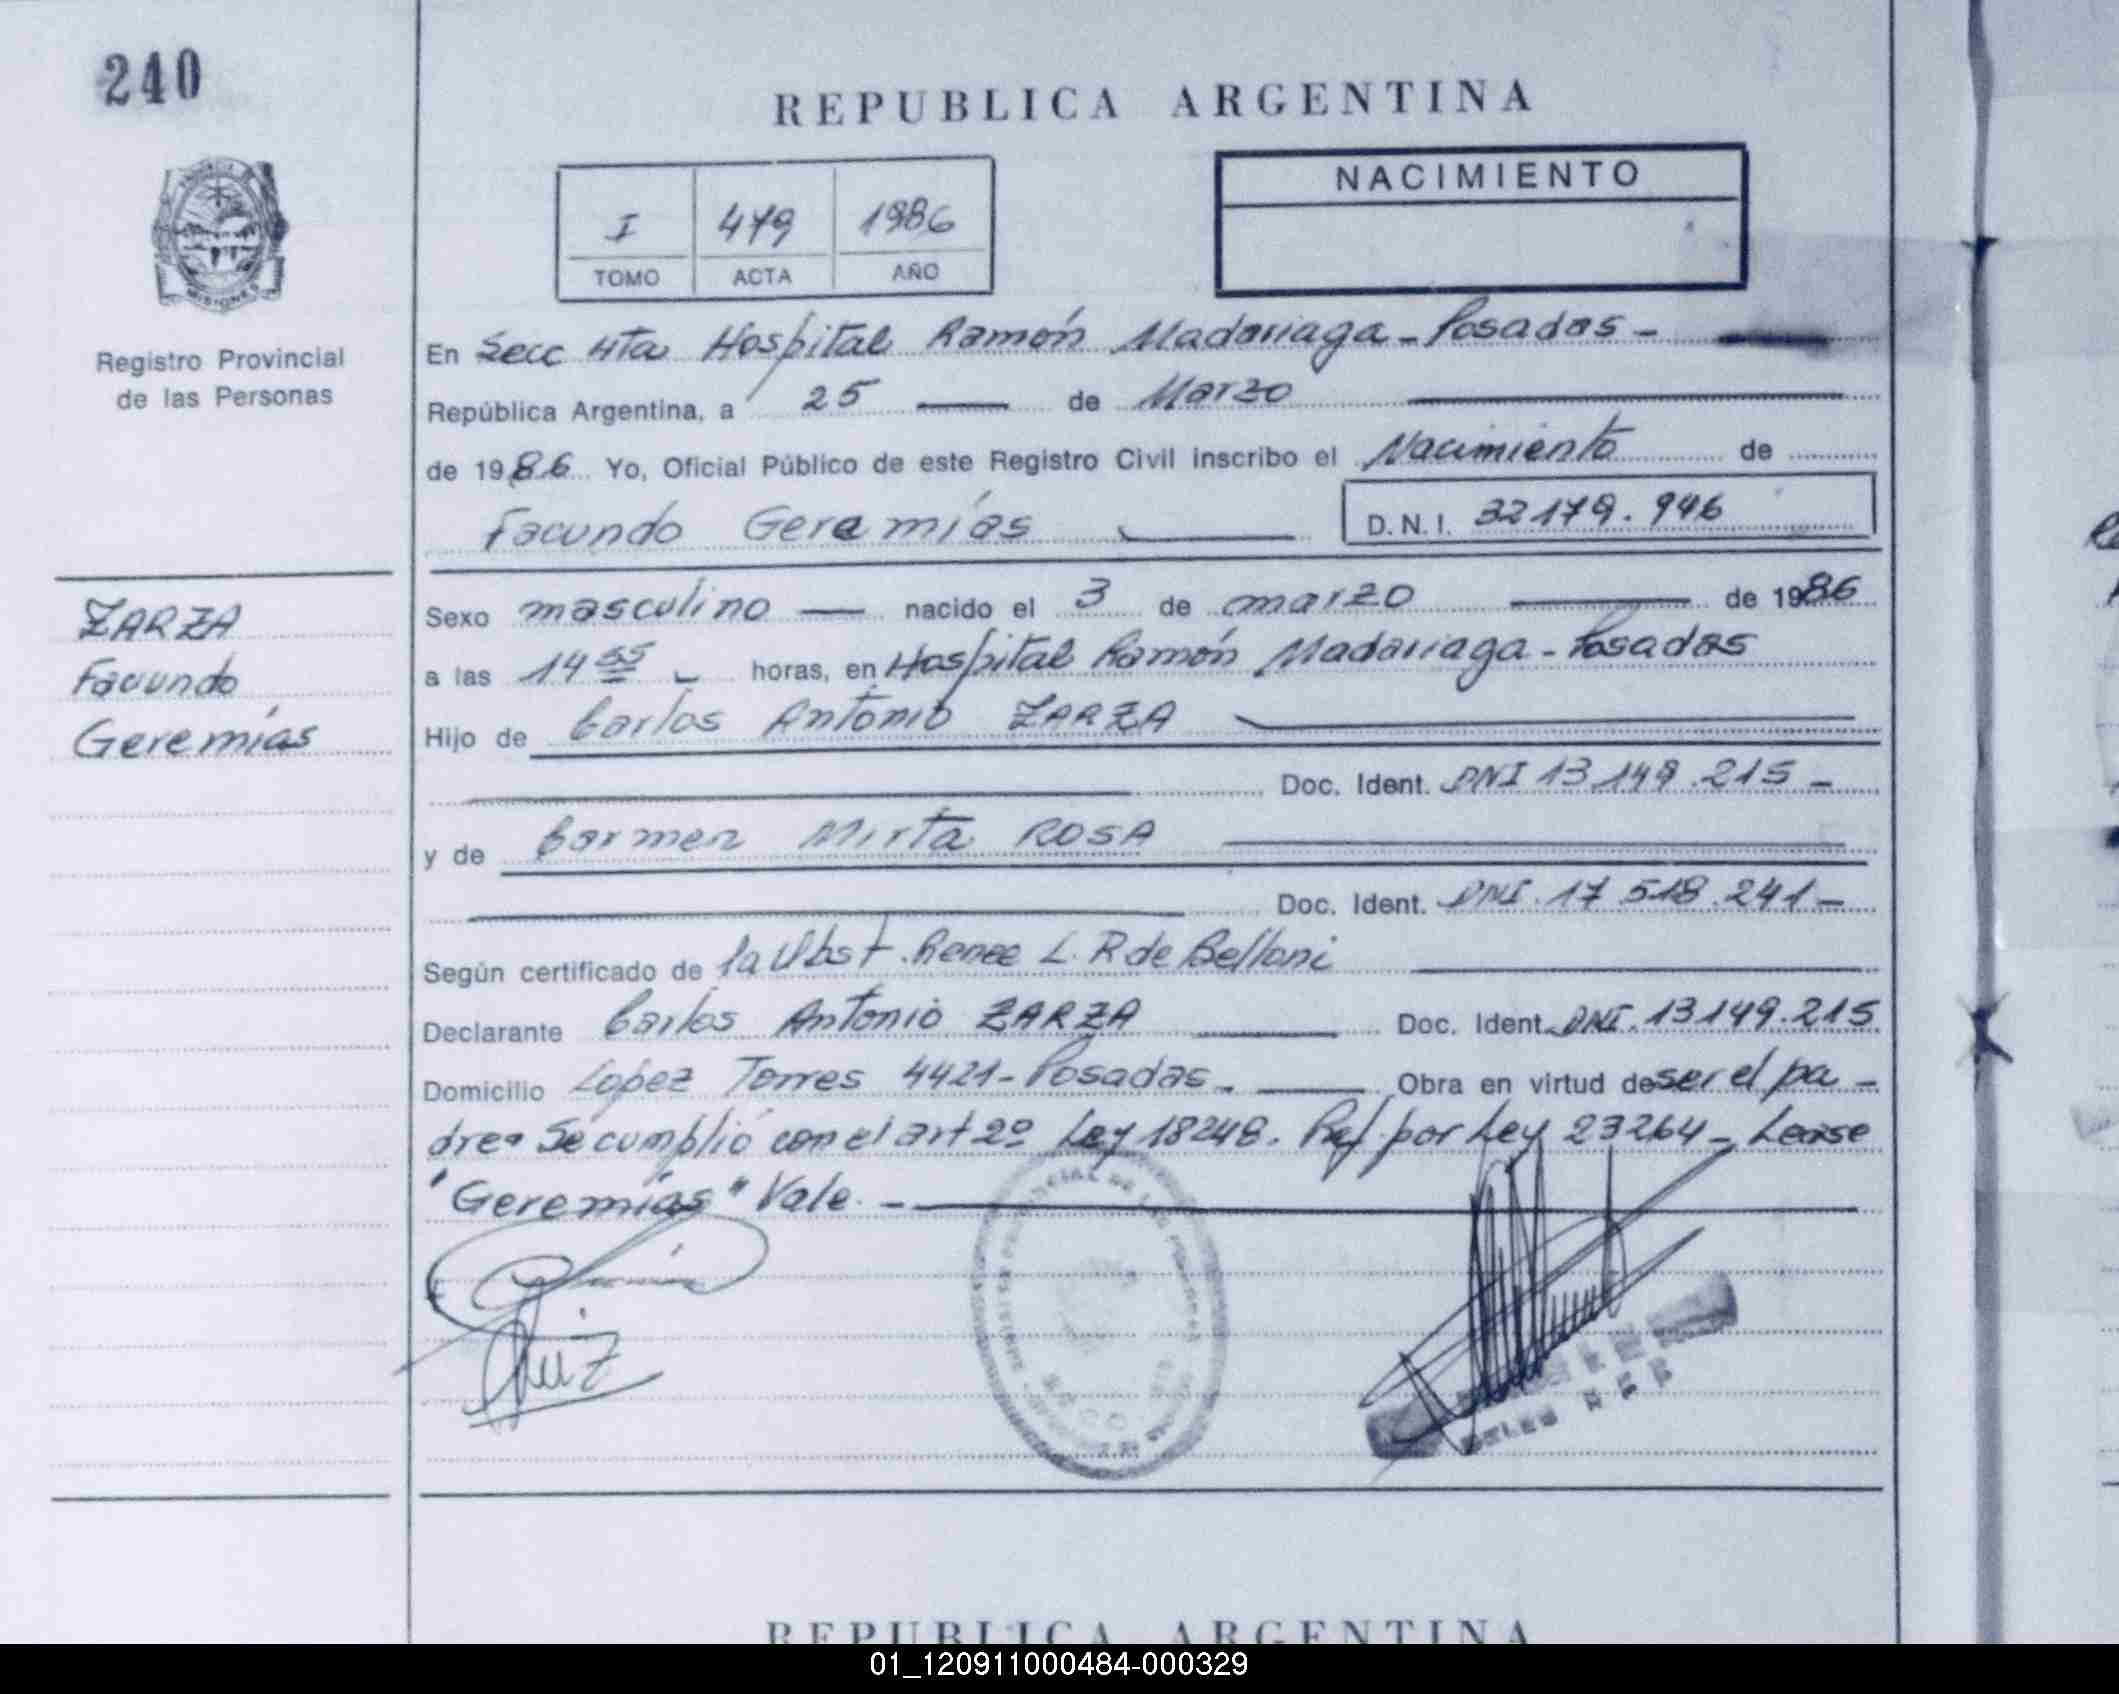 240
REPUBLICA ARGENTINA
NACIMIENTO
I 479 1986
TOMO ACTA AÑO
MISIONES
Registro Provincial
de las Personas
En Secc 4ta Hospital Ramón Madariaga - Posadas -
República Argentina, a 25 de Marzo
de 1986 Yo, Oficial Público de este Registro Civil inscribo el Nacimiento de
Facundo Geremías D.N.I. 32179.946
ZARZA
Facundo
Geremías
Sexo masculino nacido el 3 de marzo de 1986
a las 14 55 horas, en Hospital Ramón Madariaga - Posadas
Hijo de Carlos Antonio ZARZA
Doc. Ident. DNI 13 149.215 -
y de Carmen Mirta ROSA
Doc. Ident. DNI. 17 518.241 -
Según certificado de la Obst. Renee L. R de Belloni
Declarante Carlos Antonio ZARZA Doc. Ident. DNI. 13149.215
Domicilio Lopez Torres 4421 - Posadas - Obra en virtud de ser el pa -
dre. Se cumplió con el art 2º Ley 18248. Ref. por Ley 23264 - Lease
"Geremías" Vale. -
REPUBLICA ARGENTINA
01_120911000484-000329